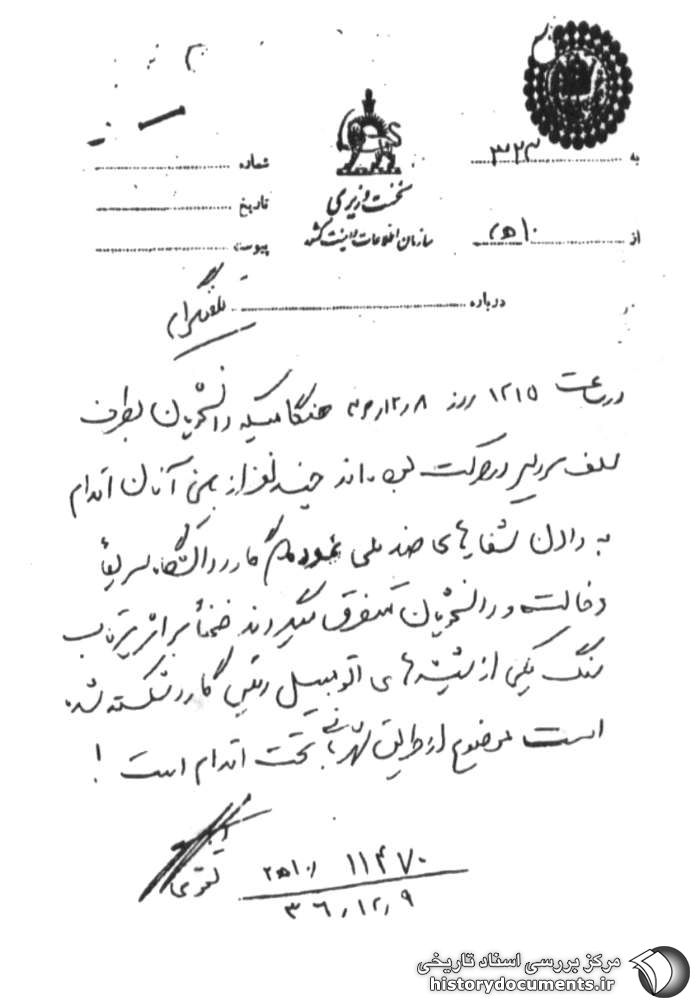 به ۳۲۳
از ۱۰ ه‍
نخست وزیری
سازمان اطلاعات و امنیت کشور
شماره
تاریخ
پیوست
درباره
تلفنگرام
در ساعت ۱۲۱۵ روز ۳۶٫۱۲٫۸ هنگامیکه دانشجویان بطرف
سلف سرویس در حرکت بوده‌اند چند نفر از بین آنان اقدام
به دادن شعارهای ضد ملی نموده گارد دانشگاه سریعاً
دخالت و دانشجویان متفرق میگردند ضمناً بر اثر پرتاب
سنگ یکی از شیشه‌های اتومبیل رئیس گارد شکسته شده
است موضوع از طریق شهربانی تحت اقدام است !
تقوی
۱۱۴۷۰
۳۶٫۱۲٫۹
مرکز بررسی اسناد تاریخی
historydocuments.ir